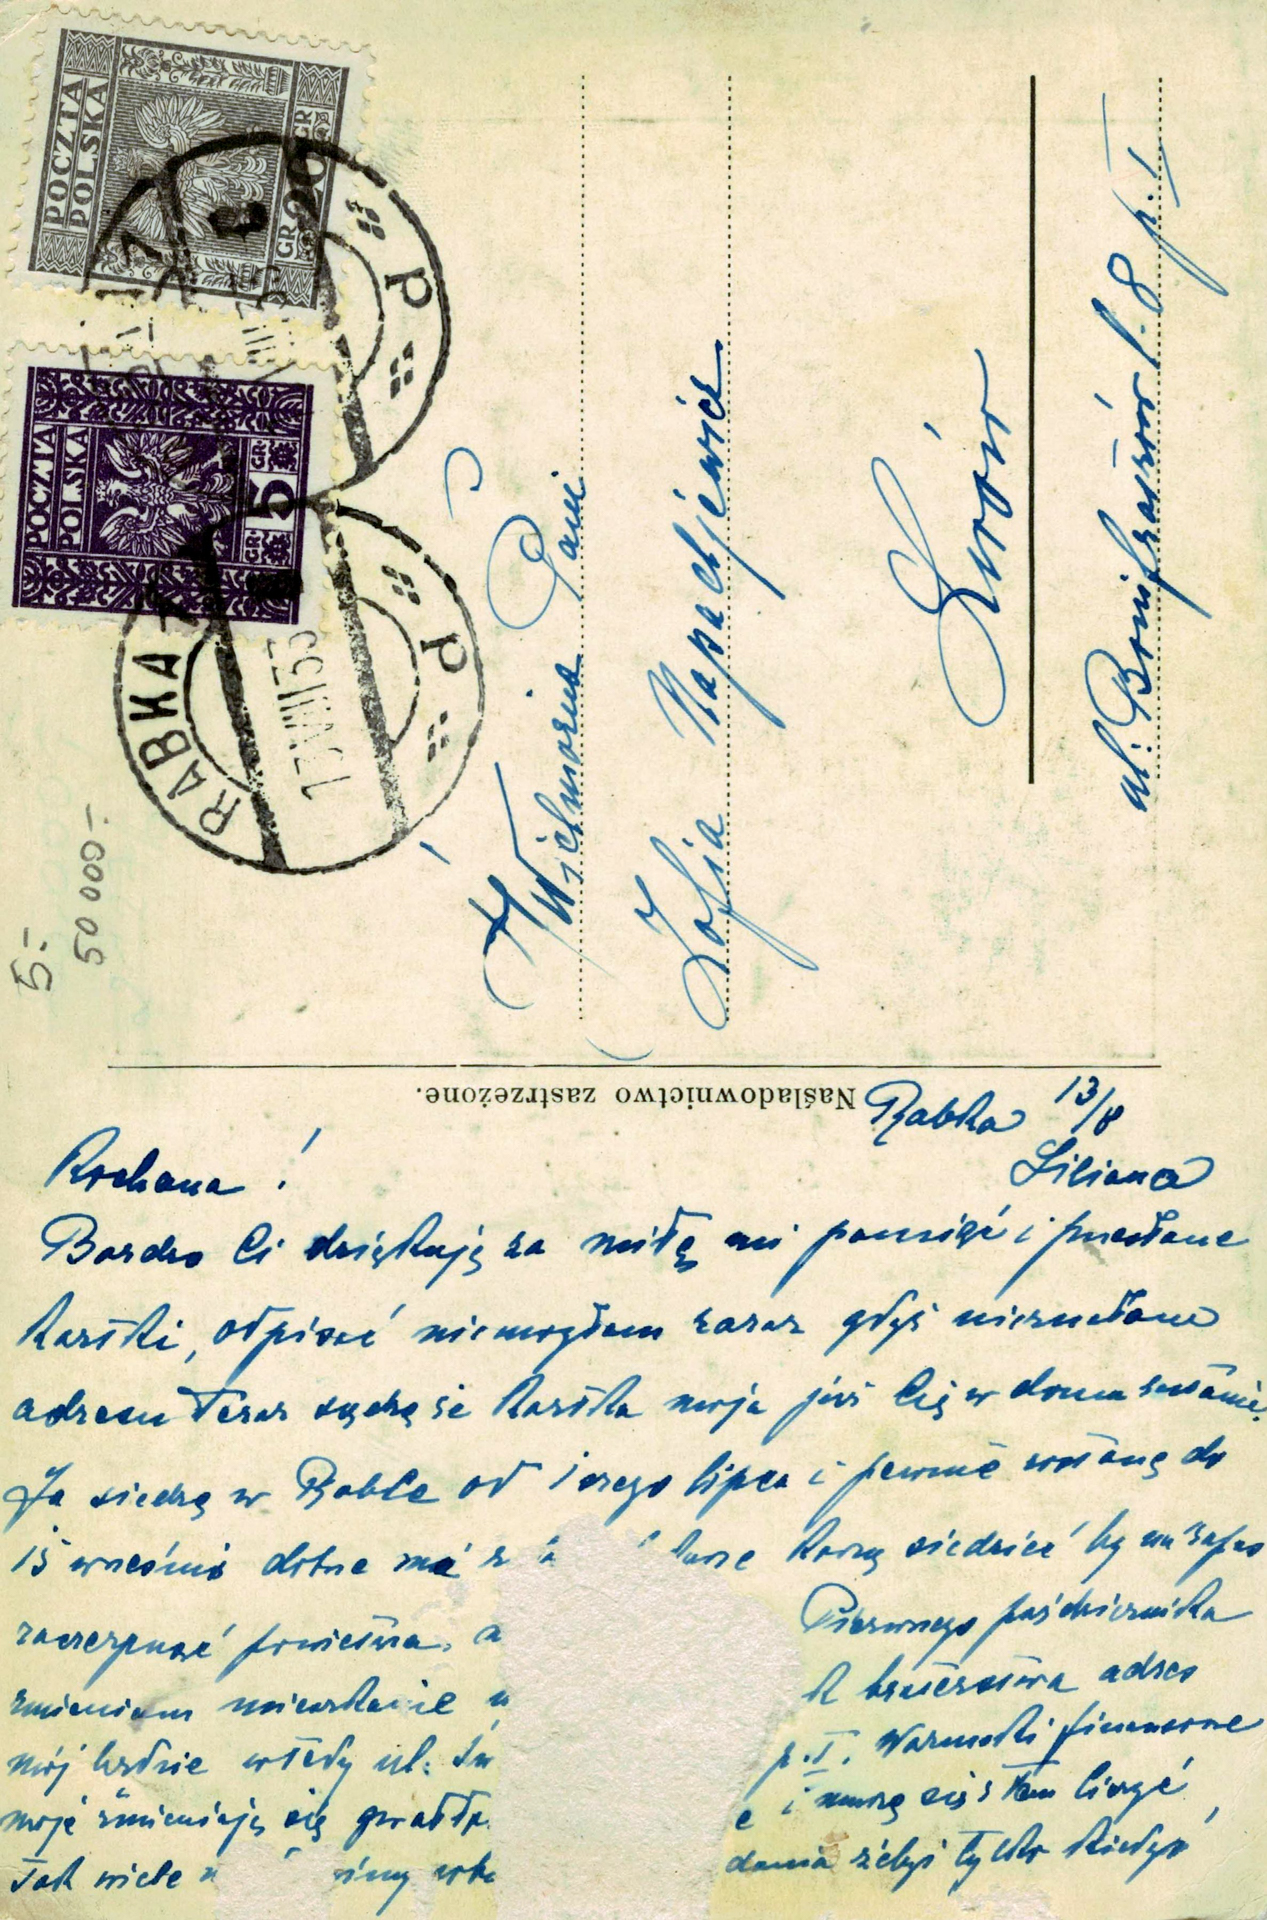 POCZTA
POLSKA
GR 20 GR
POCZTA
POLSKA
GR 5 GR
RABKA
d
RABKA
13 VIII 33
d
5.-
50 000.-
Wielmożna Pani
Zofia
Lwów
ul. Bonifratrów l. 8 p. I
Naśladownictwo zastrzeżone.
Rabka 13/8
Kochana! Liliana
Bardzo Ci dziękuję za miłą mi pamięć i przesłane
kartki, odpisać niemogłam zaraz gdyż nieznałam
adresu Teraz sądzę że kartka moja już Cię w domu zastanie.
Ja siedzę w Rabce od 1szego lipca i pewnie zostanę do
15 września dobrze mi każą siedzieć by na zapas
zaczerpnąć powietrza. Pierwszego października
zmieniam mieszkanie adres
mój będzie wtedy ul. p. I. Warunki finansowe
moje zmieniają się i muszę się z tem liczyć
Tak wiele żebyś tylko kiedyś